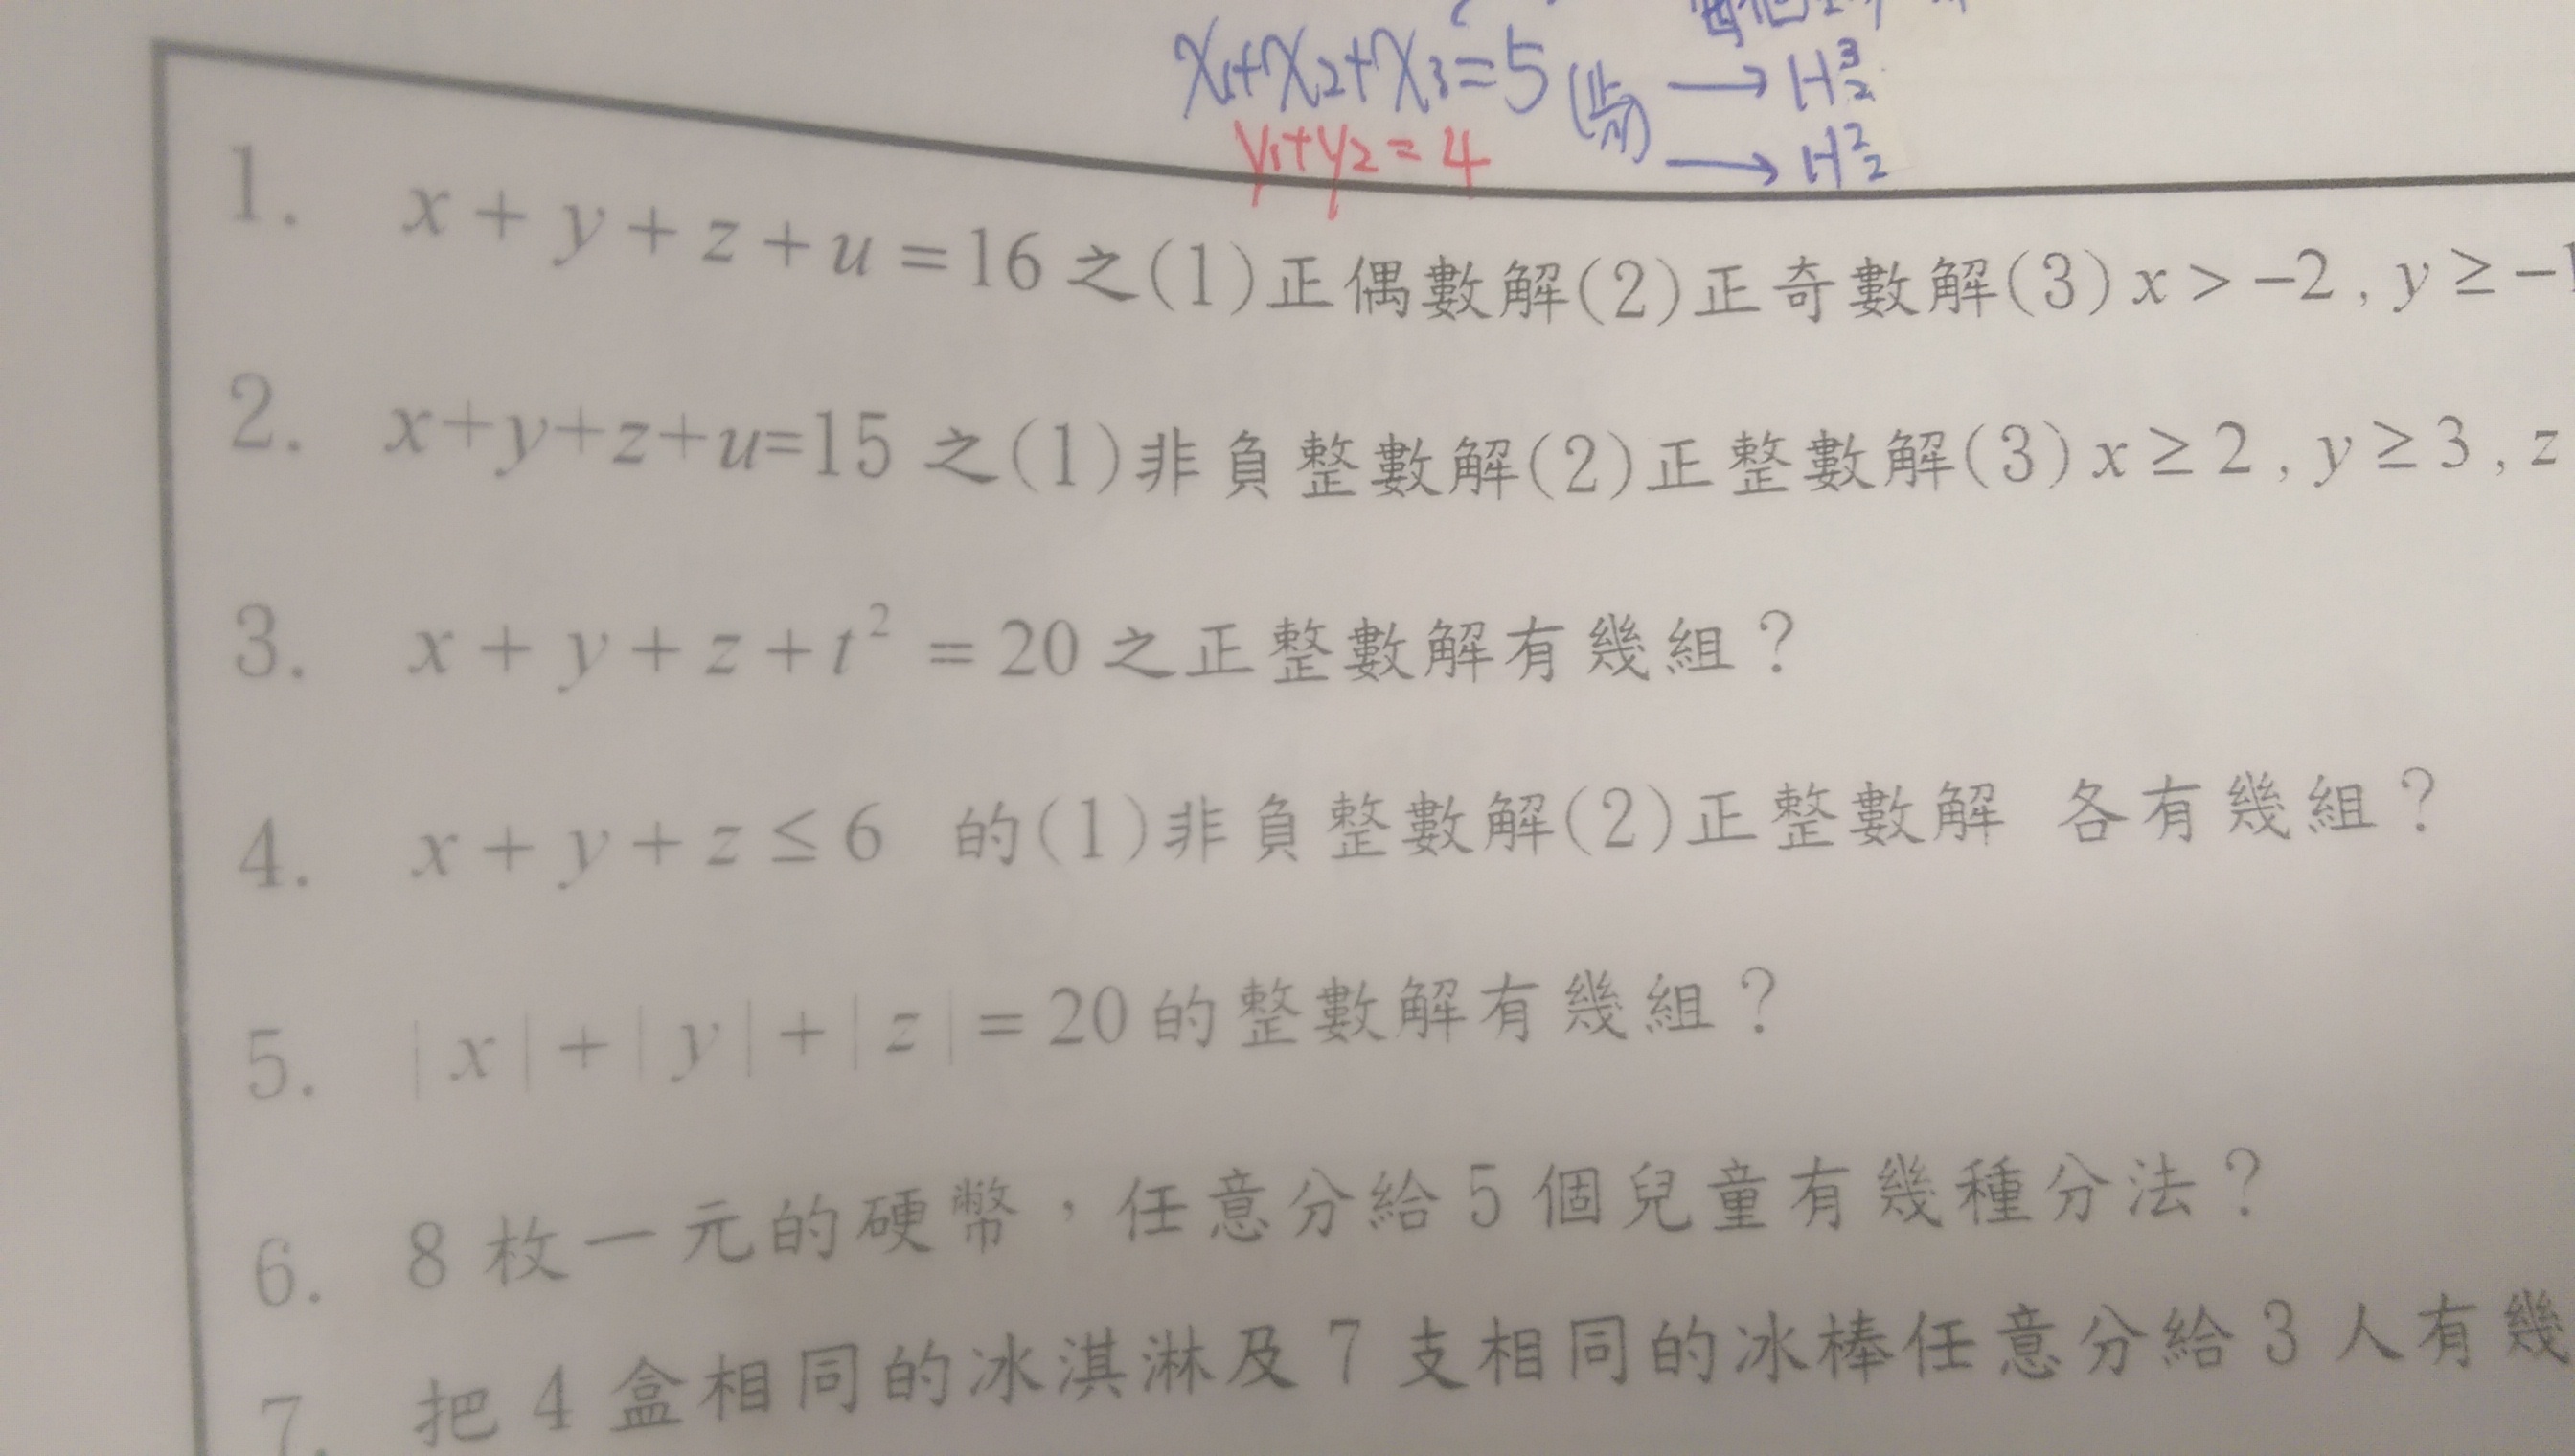 x₁+x₂+x₃=5 → H³₂
y₁+y₂=4 → H²₂
1. x + y + z + u = 16 之(1)正偶數解(2)正奇數解(3) x > −2 , y ≥ −1
2. x+y+z+u=15 之(1)非負整數解(2)正整數解(3) x ≥ 2 , y ≥ 3 , z
3. x + y + z + t² = 20 之正整數解有幾組？
4. x + y + z ≤ 6 的(1)非負整數解(2)正整數解 各有幾組？
5. | x | + | y | + | z | = 20 的整數解有幾組？
6. 8 枚一元的硬幣，任意分給 5 個兒童有幾種分法？
7. 把 4 盒相同的冰淇淋及 7 支相同的冰棒任意分給 3 人有幾